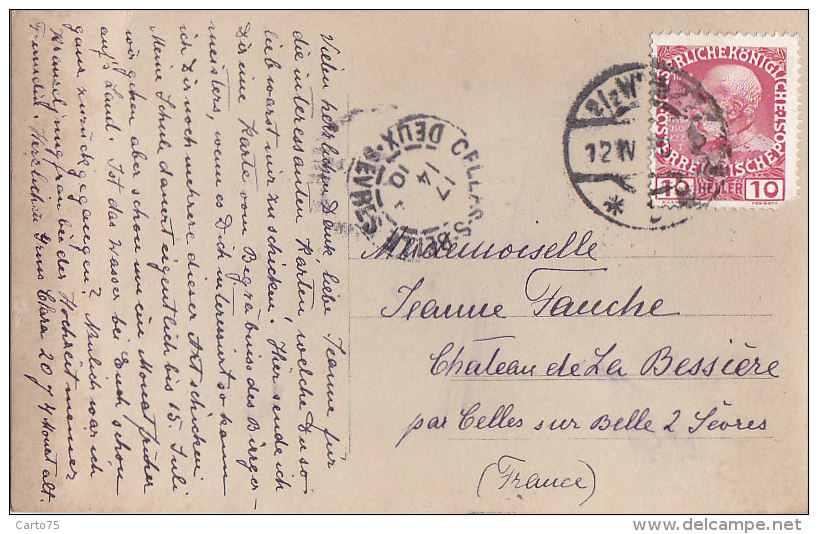 Vielen herzlichen Dank, liebe Jeanne für
die interessanten Karten, welche Du so
lieb warst mir zu schicken. Hier sende ich
Dir eine Karte vom Begräbniss des Bürger-
meisters, wenn es Dich interessirt so kann
ich Dir noch mehrere dieser Art schicken
Meine Schule dauert eigentlich bis 15. Juli
wir gehen aber schon um eine Monat früher
auf's Land. Ist das Wasser bei Euch schon
ganz zurückgegangen? Neulich war ich
Kranzeljungfrau bei der Hochzeit meiner
Herzlichen Gruss Clara 20 J 4 Monat alt.
KAISERLICHE KÖNIGLICHE POST
OESTERREICHISCHE
10 HELLER 10
12 IV
CELLES-S-BELLE
17
14
10
DEUX-SEVRES
Mademoiselle
Jeanne Fauche
Château de La Bessière
par Celles sur Belle 2 Sèvres
(France)
Carto75
delcampe.net